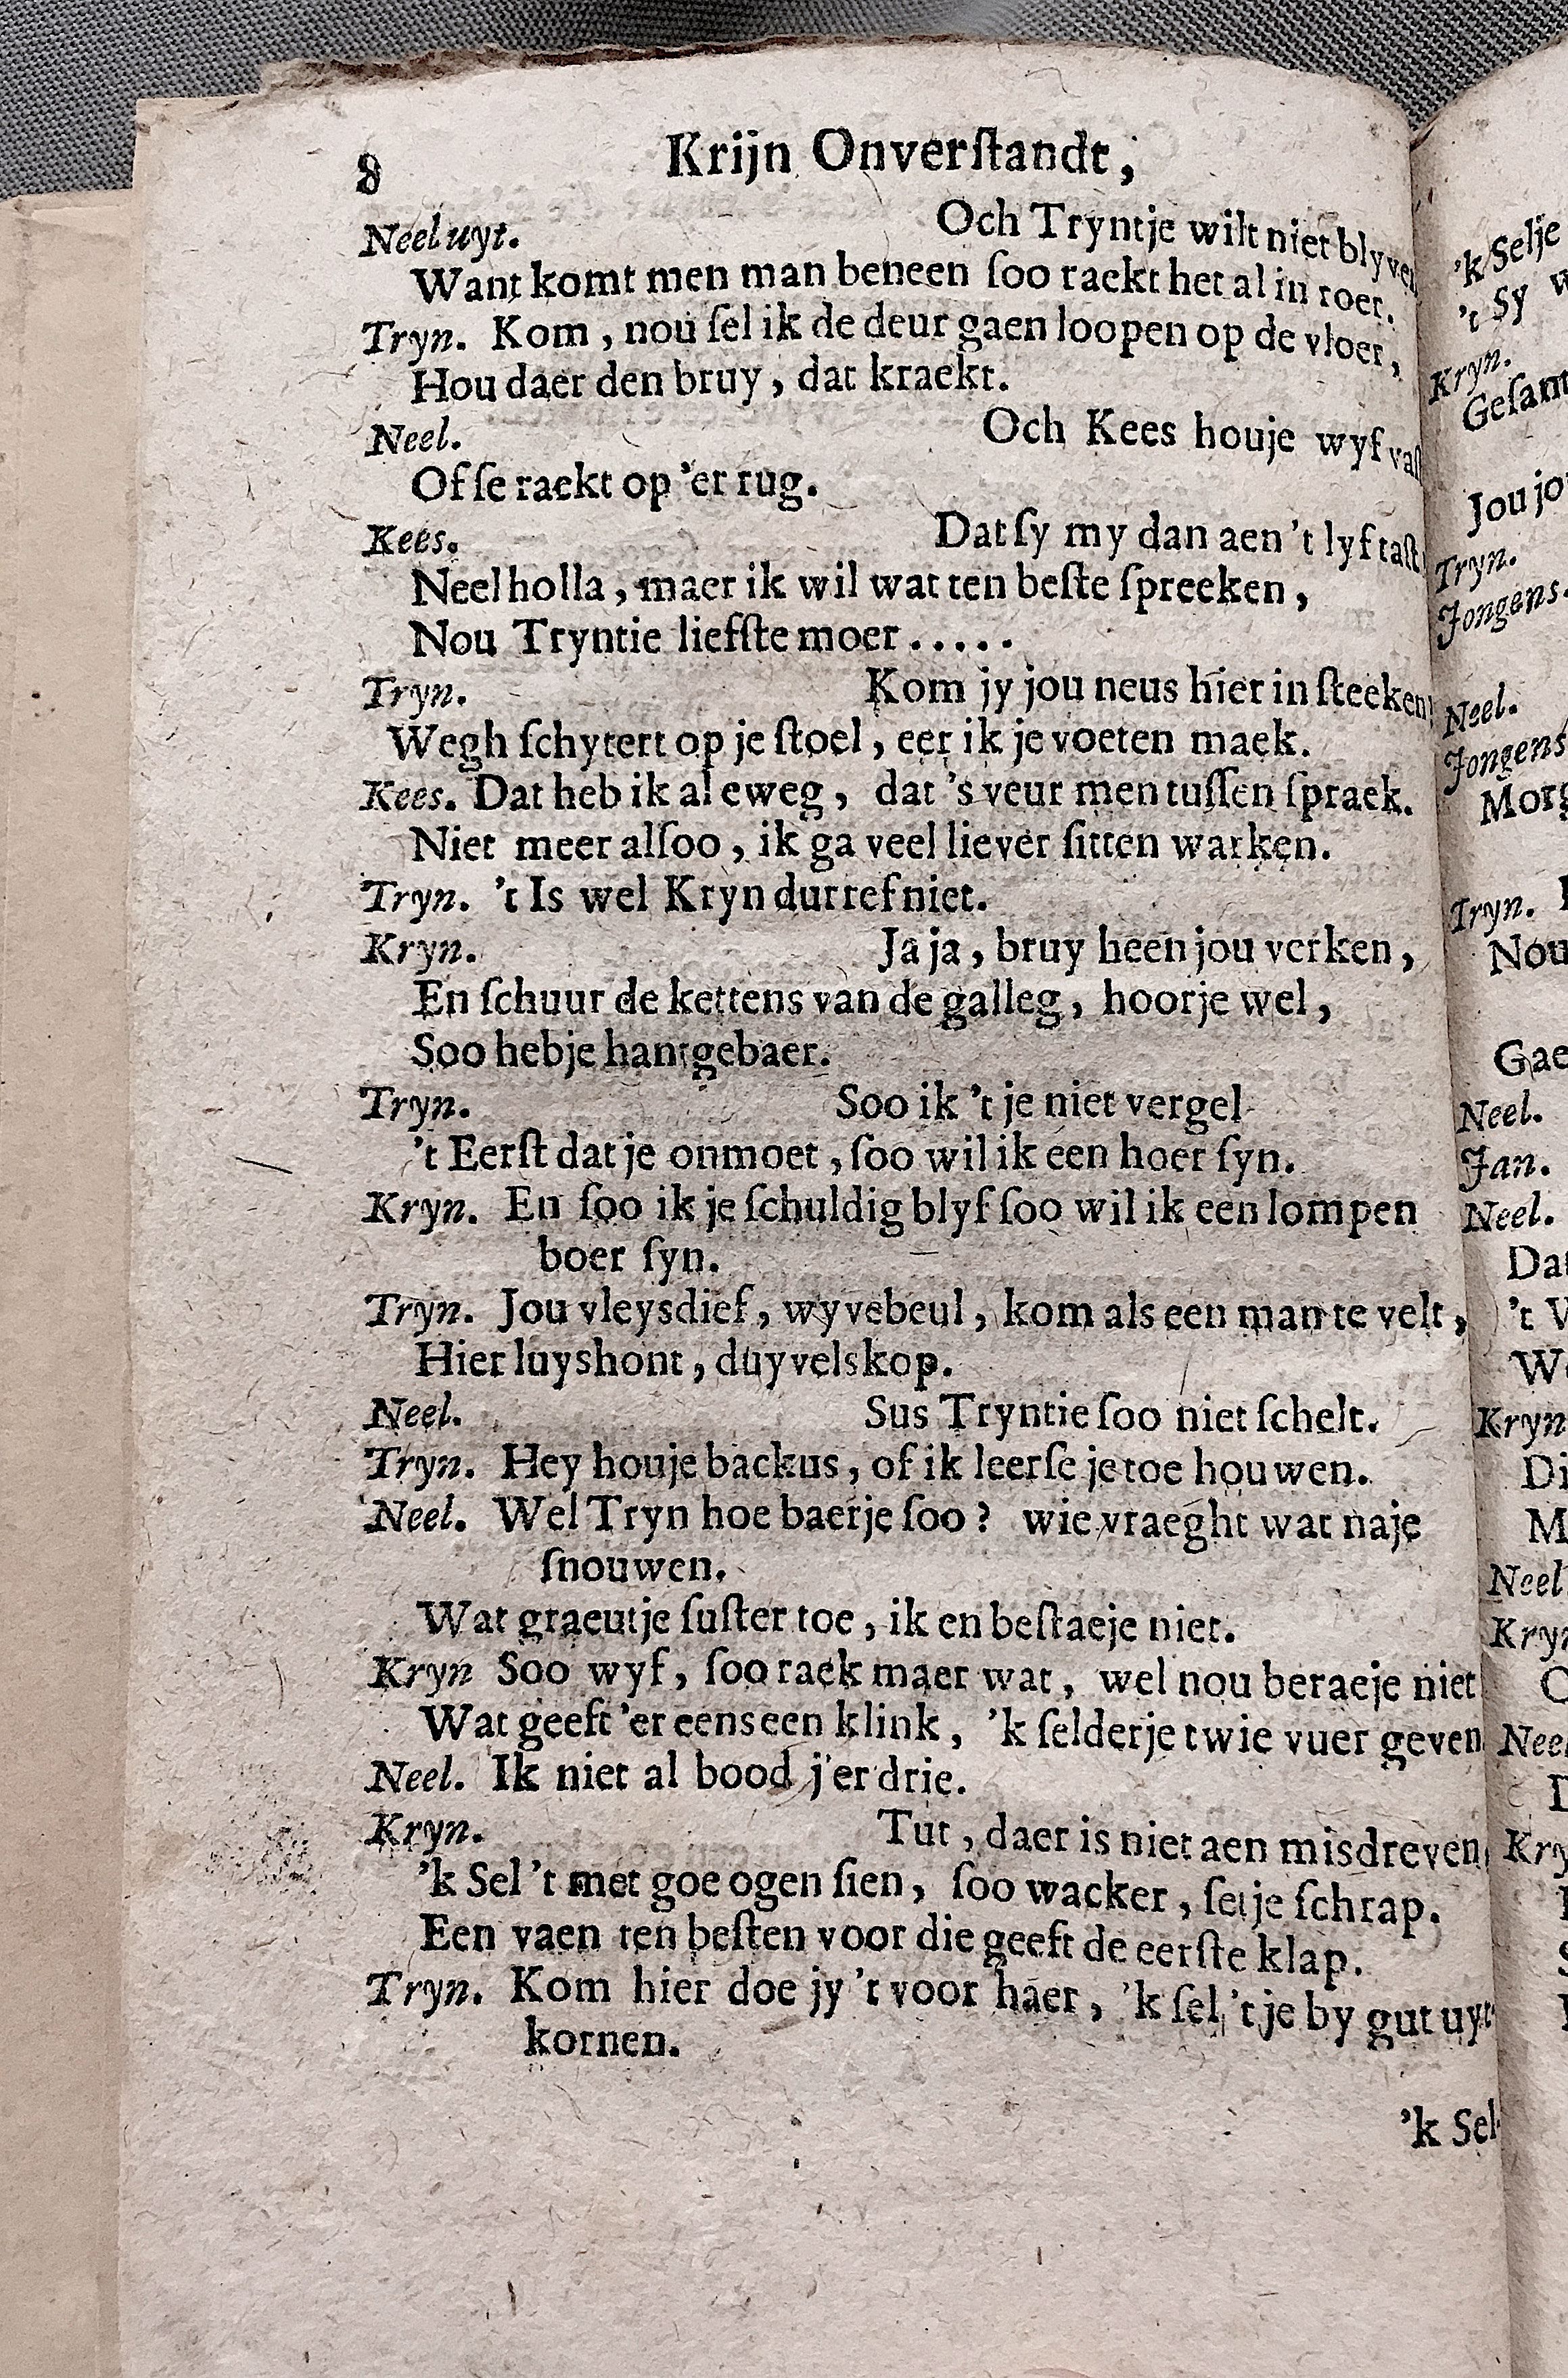 8 Krijn Onverſtandt,
Neel uyt. Och Tryntje wilt niet blyven
Want komt men man beneen ſoo raekt het al in roer.
Tryn. Kom, nou ſel ik de deur gaen loopen op de vloer,
Hou daer den bruy, dat kraekt.
Neel. Och Kees houje wyf vaſt
Of ſe raekt op 'er rug.
Kees. Dat ſy my dan aen 't lyf taſt
Neel holla, maer ik wil wat ten beſte ſpreeken,
Nou Tryntie liefſte moer.....
Tryn. Kom jy jou neus hier in ſteeken
Wegh ſchytert op je ſtoel, eer ik je voeten maek.
Kees. Dat heb ik al eweg, dat 's veur men tuſſen ſpraek.
Niet meer alſoo, ik ga veel liever ſitten warken.
Tryn. 't Is wel Kryn durref niet.
Kryn. Ja ja, bruy heen jou verken,
En ſchuur de kettens van de galleg, hoorje wel,
Soo hebje hantgebaer.
Tryn. Soo ik 't je niet vergel
't Eerſt dat je onmoet, ſoo wil ik een hoer ſyn.
Kryn. En ſoo ik je ſchuldig blyf ſoo wil ik een lompen
boer ſyn.
Tryn. Jou vleysdief, wyvebeul, kom als een man te velt,
Hier luyshont, duyvelskop.
Neel. Sus Tryntie ſoo niet ſchelt.
Tryn. Hey houje backus, of ik leerſe je toe houwen.
Neel. Wel Tryn hoe baerje ſoo? wie vraeght wat naje
ſnouwen.
Wat graeutje ſuſter toe, ik en beſtaeje niet.
Kryn Soo wyf, ſoo raek maer wat, wel nou beraeje niet
Wat geeft 'er eens een klink, 'k ſelderje twie vuer geven
Neel. Ik niet al bood j'er drie.
Kryn. Tut, daer is niet aen misdreven
'k Sel 't met goe ogen ſien, ſoo wacker, ſetje ſchrap.
Een vaen ten beſten voor die geeft de eerſte klap.
Tryn. Kom hier doe jy 't voor haer, 'k ſel 't je by gut uyt
kornen.
'k Sel
'k Selje
't Sy
Kryn.
Jou
Tryn.
Jongens.
Neel.
Jongens
Tryn.
Nou
Neel.
Jan.
Neel.
't
Kryn
Neel